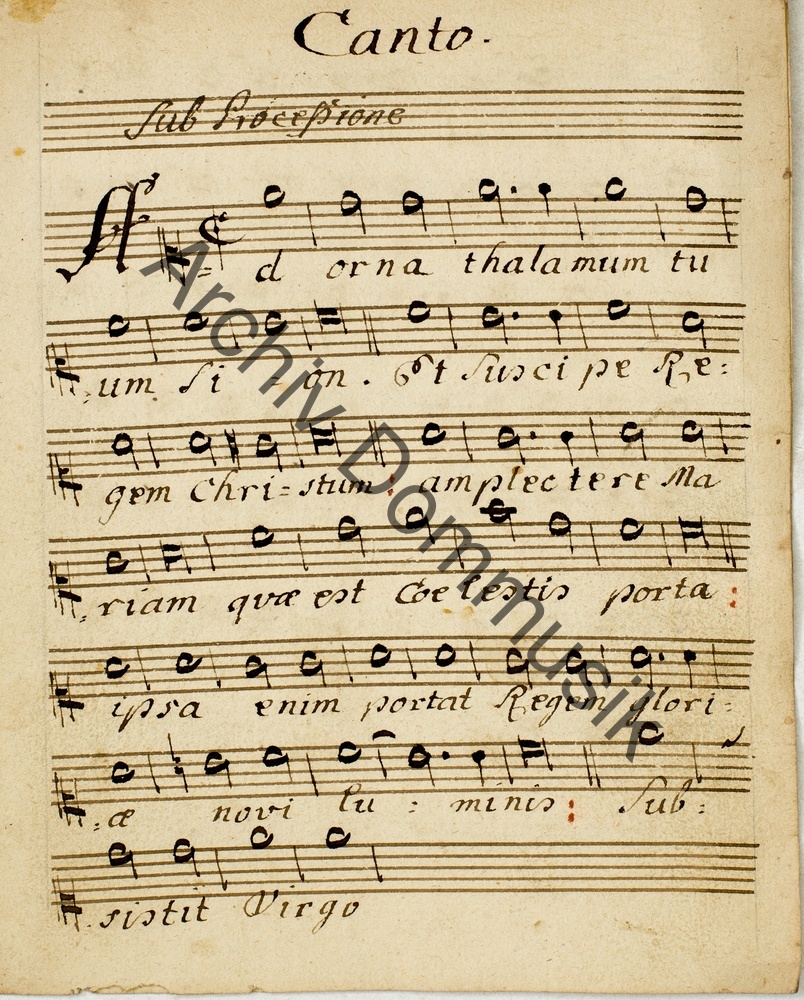 Canto.
Sub Processione
Ad orna thalamum tu
:um Si - on. Et suscipe Re:
gem Chri=stum: amplectere Ma
:riam quæ est Coelestis porta:
ipsa enim portat Regem glori:
:æ novi lu: minis: Sub:
sistit Virgo
Archiv Dommusik